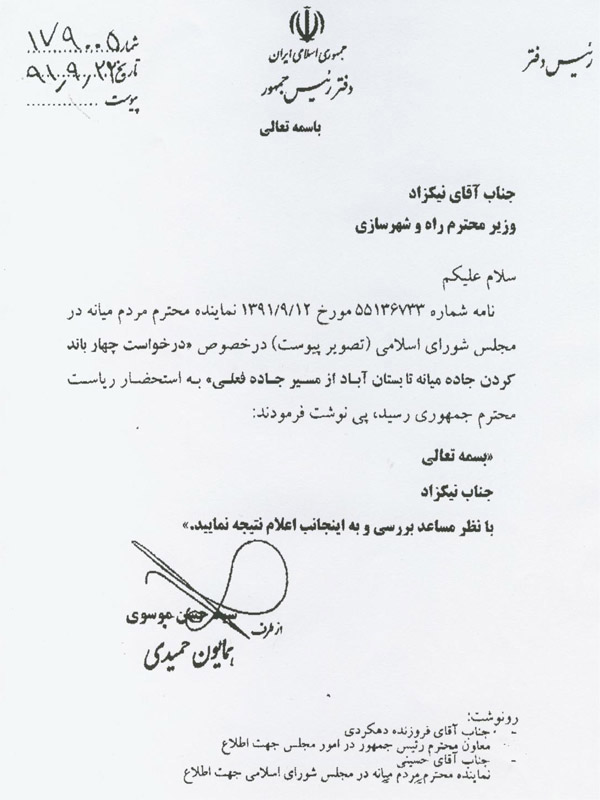 جمهوری اسلامی ایران
دفتر رئیس جمهور
رئیس دفتر
شماره ۱۷۹۰۰۵
تاریخ ۹۱/۹/۲۲
پیوست ............
باسمه تعالی
جناب آقای نیکزاد
وزیر محترم راه و شهرسازی
سلام علیکم
نامه شماره ۵۵۱۳۶۷۳۳ مورخ ۱۳۹۱/۹/۱۲ نماینده محترم مردم میانه در
مجلس شورای اسلامی (تصویر پیوست) درخصوص «درخواست چهار باند
کردن جاده میانه تا بستان آباد از مسیر جاده فعلی» به استحضار ریاست
محترم جمهوری رسید، پی نوشت فرمودند:
«بسمه تعالی
جناب نیکزاد
با نظر مساعد بررسی و به اینجانب اعلام نتیجه نمایید.»
سید حسن موسوی
از طرف
همایون حمیدی
رونوشت:
- جناب آقای فروزنده دهکردی
معاون محترم رئیس جمهور در امور مجلس جهت اطلاع
- جناب آقای حسینی
نماینده محترم مردم میانه در مجلس شورای اسلامی جهت اطلاع